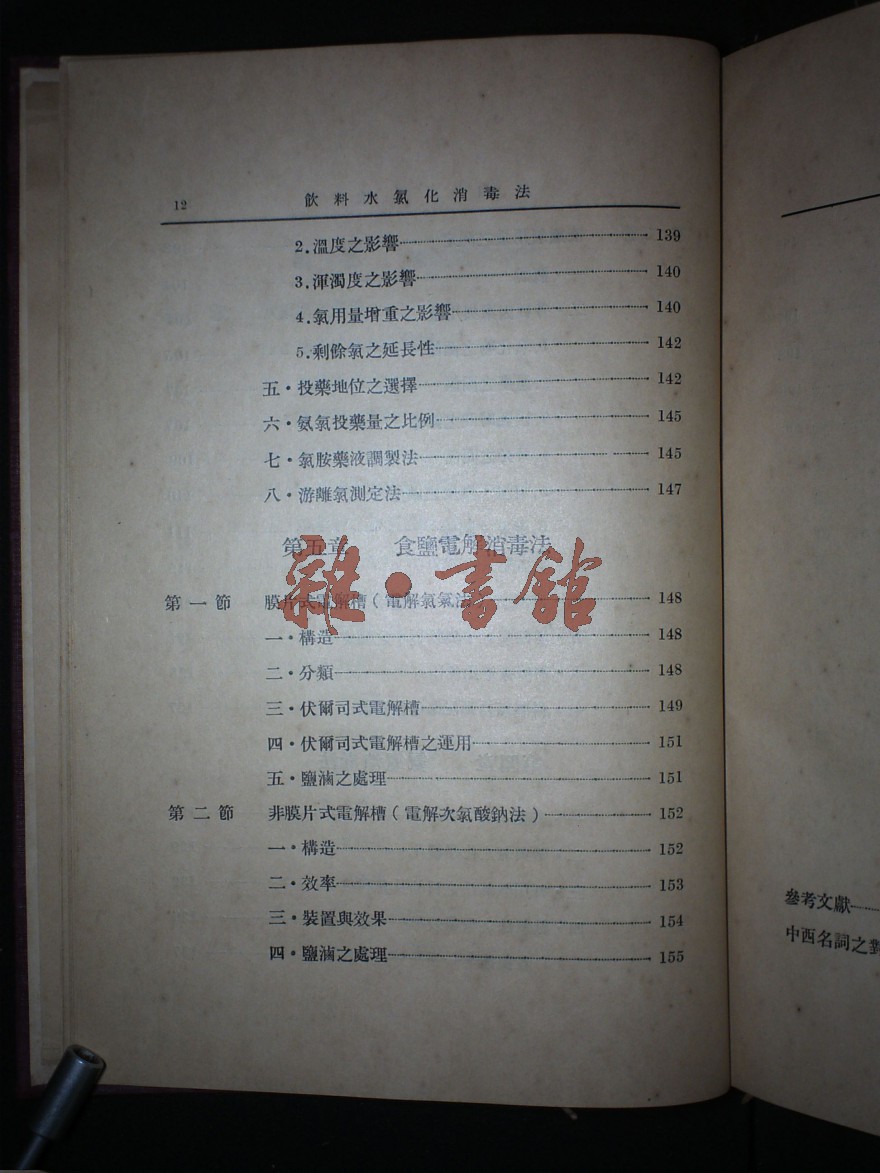 12 飲料水氯化消毒法
2.溫度之影響 139
3.渾濁度之影響 140
4.氯用量增重之影響 140
5.剩餘氯之延長性 142
五・投藥地位之選擇 142
六・氨氯投藥量之比例 145
七・氯胺藥液調製法 145
八・游離氯測定法 147
第五章 食鹽電解消毒法
雜・書館
第一節 膜片式電解槽(電解氯氣法) 148
一・構造 148
二・分類 148
三・伏爾司式電解槽 149
四・伏爾司式電解槽之運用 151
五・鹽滷之處理 151
第二節 非膜片式電解槽(電解次氯酸鈉法) 152
一・構造 152
二・效率 153
三・裝置與效果 154
四・鹽滷之處理 155
參考文獻
中西名詞之對